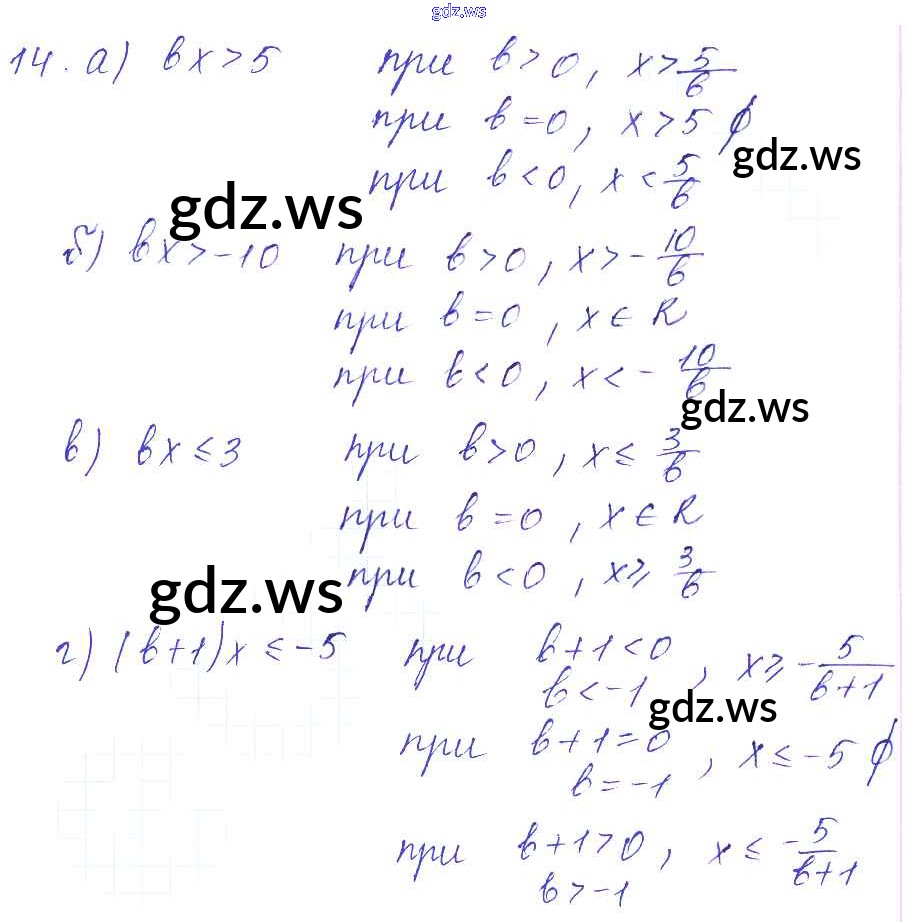 gdz.ws
14. а) bx > 5 при b > 0, x > 5/b
при b = 0, x > 5 ∅
gdz.ws
при b < 0, x < 5/b
gdz.ws
б) bx > -10 при b > 0, x > -10/b
при b = 0, x ∈ R
при b < 0, x < -10/b
gdz.ws
в) bx ≤ 3 при b > 0, x ≤ 3/b
при b = 0, x ∈ R
при b < 0, x ≥ 3/b
gdz.ws
г) (b+1)x ≤ -5 при b+1 < 0, x ≥ -5/(b+1)
b < -1
gdz.ws
при b+1 = 0, x ≤ -5 ∅
b = -1
при b+1 > 0, x ≤ -5/(b+1)
b > -1